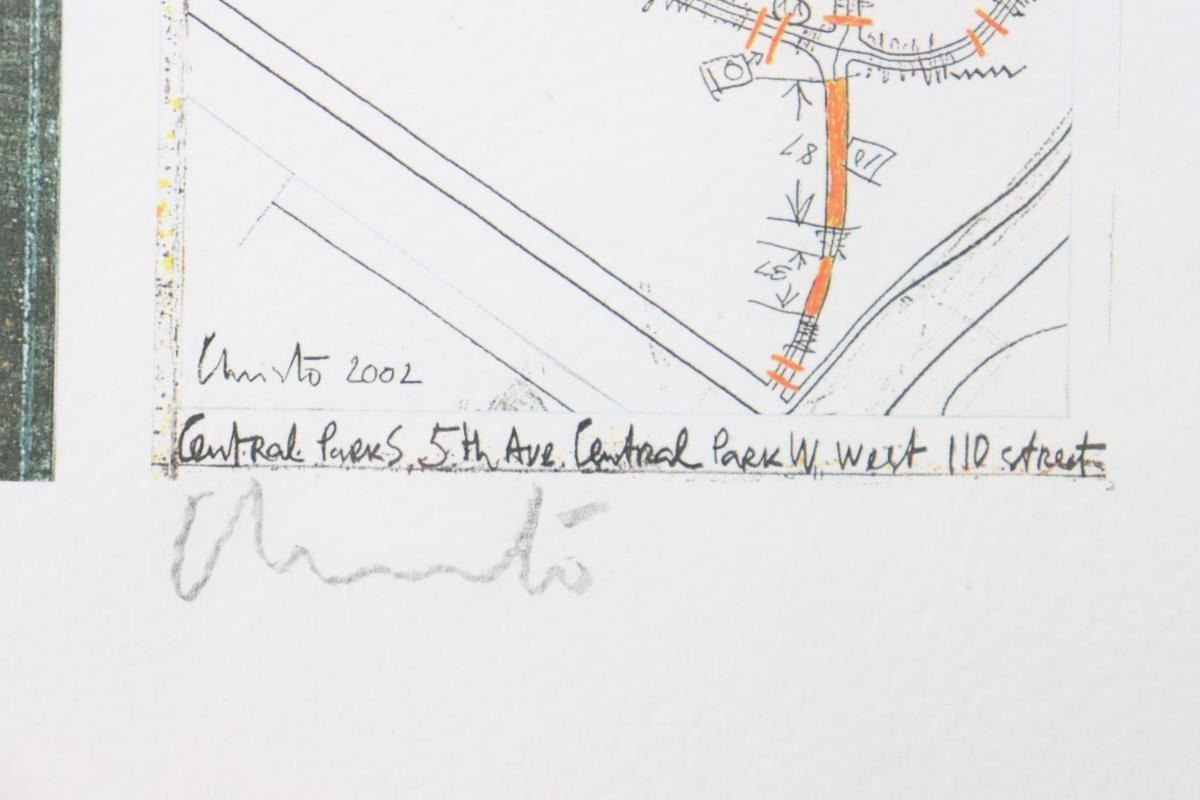 01
87
91
37
Christo 2002
Central Park S, 5th Ave. Central Park W, West 110 street
Christo